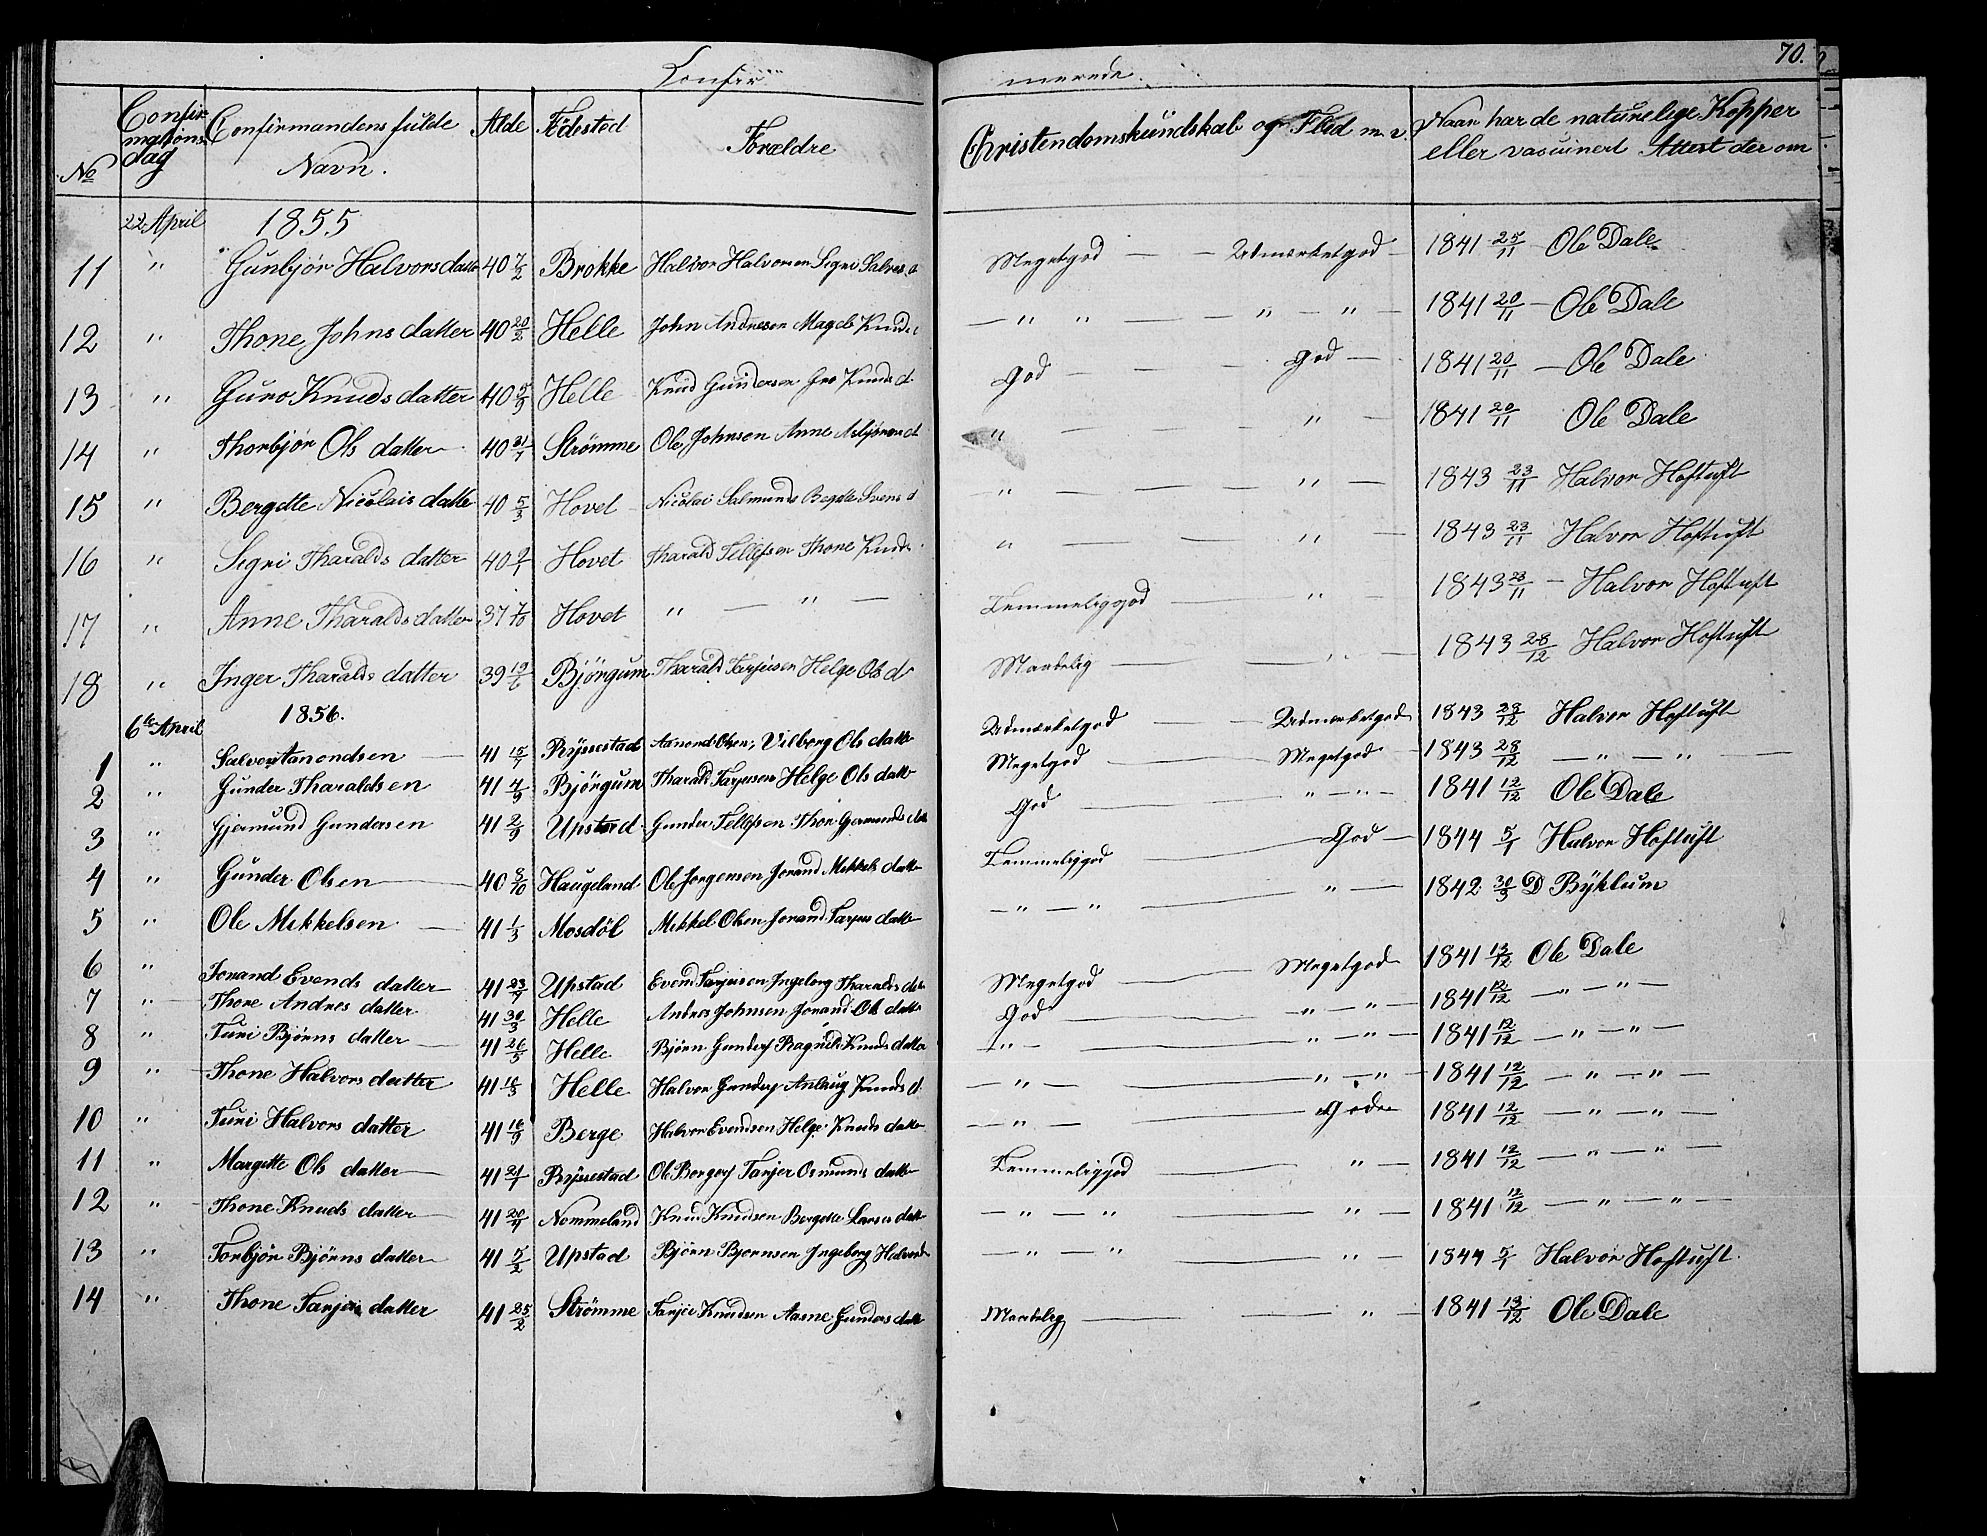 70.
Confir merede.
No Confirmations dag Confirmandens fulde Navn. Alde Födested Forældre Christendomskundskab og Flid m. v. Naar har de naturelige Kopper eller vaccinert Attest der om
22 April 1855
11 " Gunbjör Halvors datter 40 7/2 Brokke Halvor Halvorsen Segri Salves d Megetgod — — Udmærketgod — 1841 25/11 — Ole Dale
12 " Thone Johns datter 40 20/2 Helle John Andresen Knuds — " " — — " — " — 1841 20/11 — Ole Dale
13 " Guro Knuds datter 40 5/9 Helle Knud Gundersen Gro Knuds d. God — — — God — 1841 20/11 — Ole Dale
14 " Thorbjör Ols datter 40 Strömme Ole Johnsen Anne d " — — — " — 1841 20/11 Ole Dale
15 " Bergette Nicolais datter 40 5/3 Hovet Nicolai Salmunds Svens d — " — — — " — 1843 23/11 Halvor Hoftuft
16 " Segri Tharalds datter 40 9/1 Hovet Tharald Tellefsen Thone Knuds " — — — " — 1843 23/11 Halvor Hoftuft
17 " Anne Tharalds datter 37 7/10 Hovet " — " — Temmeliggod — " — 1843 23/11 — Halvor Hoftuft
18 " Inger Tharalds datter 39 19/6 Björgum Tharald Tarjeisen Helge Ols d Maadelig — — " — 1843 28/12 Halvor Hoftuft
6te April 1856.
1 " Salve Aanondsen 41 15/7 Ryssestad Aanond Olsen, Vilborg Ols datter Udmærketgod — Udmærketgod 1843 28/12 Halvor Hoftuft
2 " Gunder Tharaldsen 41 4/9 Björgum Tharald Tarjeisen Helge Ols datter Megetgod — Megetgod 1843 28/12 — " — " —
3 " Gjermund Gundersen 41 2/9 Upstad Gunder Tellefsen Thor Gjermunds datter God — " — " — 1841 12/12 Ole Dale
4 " Gunder Olsen 40 8/10 Haugeland Ole Jorgensen Jorand Mikkels datter Temmeliggod — God — 1844 5/1 Halvor Hoftuft
5 " Ole Mikkelsen 41 1/3 Mosdöl Mikkel Olsen Jorand Tarjeis datter — " — " — " — 1842 30/3 D Byklum
6 " Jorand Evends datter 41 23/7 Upstad Evend Tarjeisen Ingeborg Tharalds datter Megetgod — Megetgod 1841 12/12 Ole Dale
7 " Thone Andres datter 41 30/3 Helle Andres Johnsen Jorand Ols datter God — " — " — 1841 12/12 — " — " —
8 " Turi Bjørns datter 41 26/5 Helle Bjørn Gunders Ragnild Knuds datter — " — — " — " — 1841 12/12 — " — " —
9 " Thone Halvors datter 41 16/3 Helle Halvor Gunders Aslaug Knuds d — " — — " — " — 1841 12/12 — " — " —
10 " Turi Halvors datter 41 16/9 Berge Halvor Evendsen Helge Knuds datter — " — — Gode 1841 12/12 — " — " —
11 " Margette Ols datter 41 21/1 Ryssestad Ole Tarjer Osmunds datter Temmeliggod — " — 1841 12/12 — " — " —
12 " Thone Knuds datter 41 Nommeland Knud Knudsen Bergette Larses datter — " — " — " — 1841 12/12 — " — " —
13 " Torbjör Björns datter 41 5/2 Upstad Bjørn Bjornsen Ingeborg — " — " — " — 1844 5/1 Halvor Hoftuft.
14 " Thone Tarjeis datter 41 25/2 Strömme Tarjei Knudsen Aasne Gunders datter Maadelig — " — 1841 13/12 Ole Dale